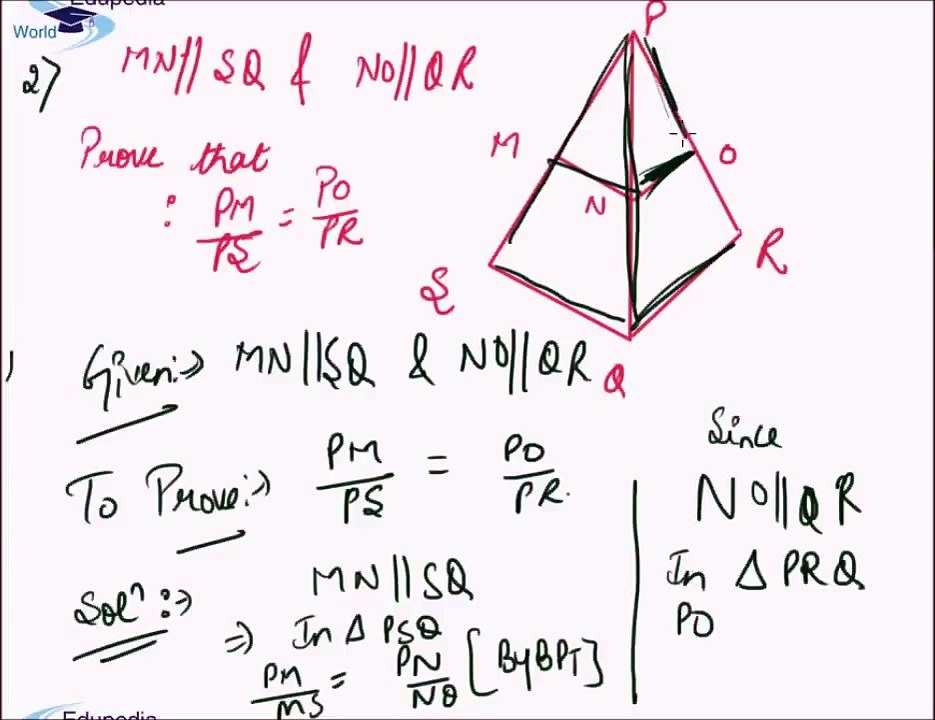 Edupedia
World
2) MN // SQ & NO // QR
Prove that
: PM/PS = PO/PR
P
M
O
N
S
R
Q
Given:-> MN || SQ & NO || QR
To Prove:-> PM/PS = PO/PR.
Solⁿ:-> MN || SQ
=> In Δ PSQ
PM/MS = PN/NQ [By BPT]
Since
NO || QR
In Δ PRQ
PO
Edupedia